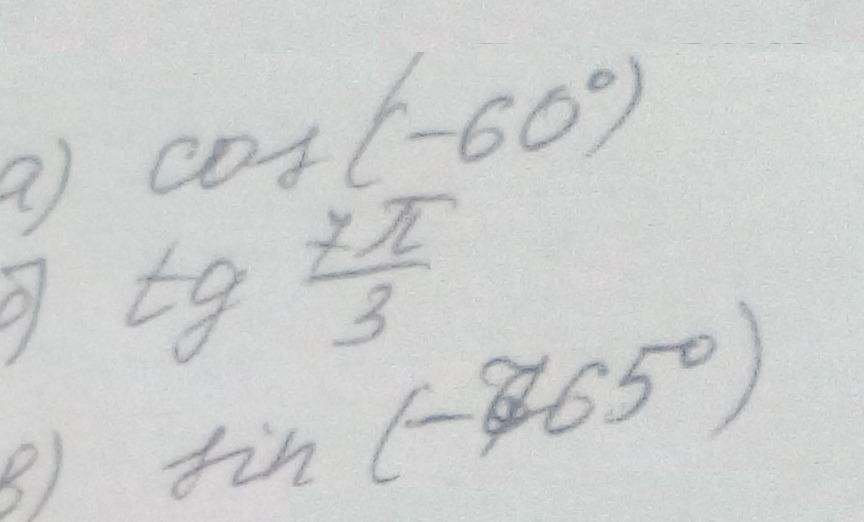 а) cos(-60°)
б) tg 7π/3
в) sin(-765°)